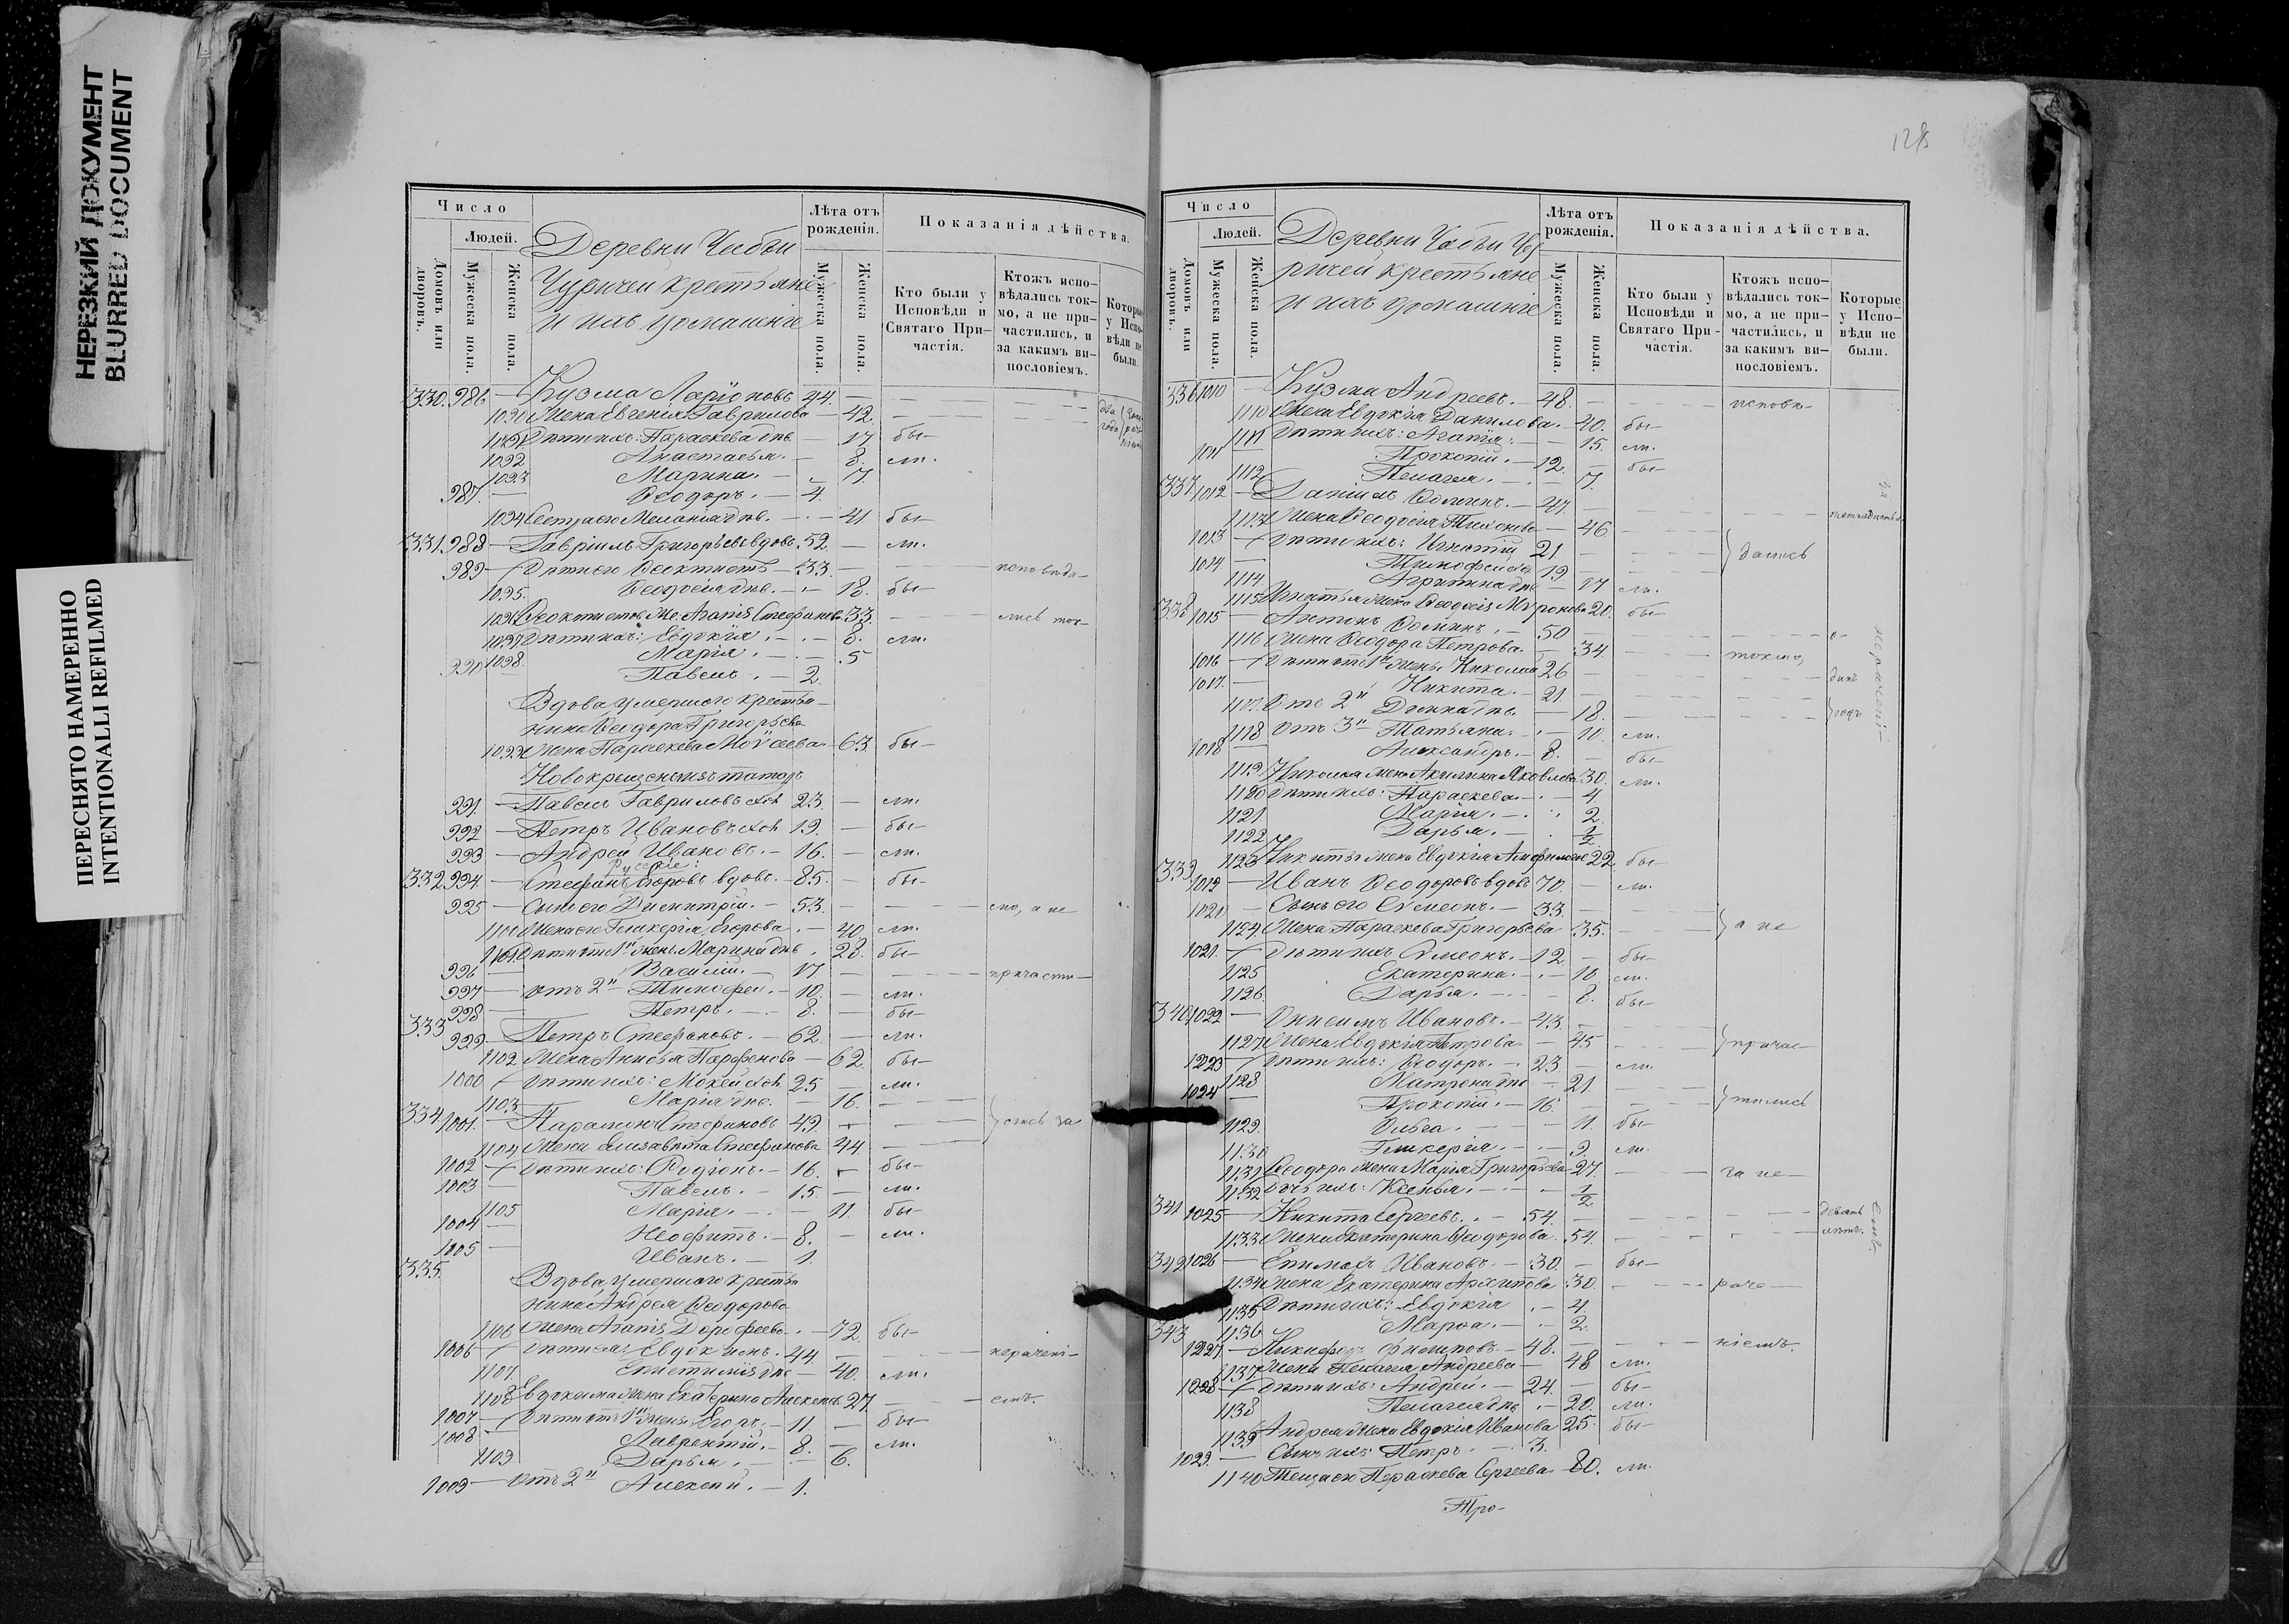 НЕРЕЗКИЙ ДОКУМЕНТ
BLURRED DOCUMENT
ПЕРЕСНЯТО НАМЕРЕННО
INTENTIONALLI REFILMED
Число
Людей.
Домовъ или дворовъ.
Мужеска пола.
Женска пола.
Деревни
крестьяне
и ихъ домашніе
Лѣта отъ рожденія.
Мужеска пола.
Женска пола.
Показанія дѣйства.
Кто были у Исповѣди и Святаго Причастія.
Ктожъ исповѣдались токмо, а не причастились, и за какимъ винословіемъ.
Которые у Исповѣди не были.
330. 986 — Кузма Ларіоновъ 44. —
1090 Жена Евгенія Гаврилова — 42. два года
1091 Дѣти ихъ: Параскева дѣв. — 17 бы-
1092 Анастасья — 8. ли.
1093 Марина. — 7.
987. — Ѳеодоръ. — 4.
1094 Сестра его Меланія дѣв. — 41 бы-
331. 988 — Гавріилъ Григорьевъ вдовъ 52 — ли.
989 — Дѣти его Ѳеоктистъ — 33. — исповѣда-
1095. Ѳеодосія дѣв. — 18. бы-
1096 Ѳеоктиста же. Агапія Стефанова 33. — лись ток-
1097 Дѣти ихъ: Евдокія. — 8. ли.
1098. Марія. — 5
990 — Павелъ. — 2.
Вдова умершаго крестья-
нина Ѳеодора Григорьева
1099 Жена Параскева Моѵсеева 63. бы-
Новокрещенные изъ татаръ
991. — Павелъ Гавриловъ хол 23. — ли.
992 — Петръ Ивановъ хол 19. — бы-
993 — Андрей Ивановъ. — 16. — ли.
Русскіе:
332 994. — Стефанъ Егоровъ вдовъ. — 85. — бы-
995 — Сынъ его Димитрій. — 53. — мо, а не
1100 Жена его Гликерія Егорова. — 40 ли.
1101. Дѣти отъ 1й жены Марина дѣв. 28. бы-
996 — Василій. — 17 — причасти-
997 — отъ 2й Тимофей. — 10. — ли.
998 — Петръ. — 8. — бы-
333 999. — Петръ Стефановъ. — 62. — ли.
1102 Жена Анисья Парфенова — 62. бы-
1000 — Дѣти ихъ: Мокей хол 25 — ли.
1103 Марія дѣв. — 16. —
334 1001. — Парамонъ Стефановъ 49. — лись за
1104 Жена Елизавета Стефанова 44. —
1002 — Дѣти ихъ: Родіонъ. — 16. — бы-
1003 — Павелъ. — 15. — ли.
1105 Марія. — 11. бы-
1004 — Неофитъ. — 8. — ли.
1005 — Иванъ. — 1.
335. Вдова, умершаго крестья
нина Андрея Ѳеодорова
1106 Жена Агапія Дорофеева. — 72. бы-
1006 — Дѣти ея: Евдокимъ. — 44. — нерачені-
1107. Епистимія дѣв — 40. ли.
1108 Евдокима жена Екатерина Алексѣева 27. — емъ.
1007 — Дѣти отъ 1й жены Егоръ. — 11 — бы-
1008 — Лаврентій. — 8. — ли.
1109 Дарья. — 6.
1009 — отъ 2й Алексѣй. — 1.
Число
Людей.
Домовъ или дворовъ.
Мужеска пола.
Женска пола.
Деревни
крестьяне
и ихъ домашніе
Лѣта отъ рожденія.
Мужеска пола.
Женска пола.
Показанія дѣйства.
Кто были у Исповѣди и Святаго Причастія.
Ктожъ исповѣдались токмо, а не причастились, и за какимъ винословіемъ.
Которые у Исповѣди не были.
336 1010 — Кузма Андреевъ. — 48. — исповѣ-
1110 Жена Евдокія Данилова. — 40. бы-
1111 Дѣти ихъ: Агапія. — 15. ли.
1011 — Прокопій. — 12. — бы-
1112 Пелагея. — 7.
337 1012 — Даніилъ Ѳоминъ. — 47. —
1113 Жена Ѳеодосія Тихонова — 46.
1013 — Дѣти ихъ: Игнатій 21. — дались
1014 — Тимофей хол 19. —
1114 Агрипина дѣв — 17 ли.
1115 Игнатья жена Ѳеодосія Мѵронова 20. бы-
338 1015 — Антонъ Ѳоминъ. — 50 — о-
1116 Жена Ѳеодора Петрова. — 34. — токмо,
1016 — Дѣти отъ 1й жены Николай 26 — динъ
1017. — Никита. — 21. —
1117. Отъ 2й Домна дѣв. — 18. — годъ
1118 Отъ 3й Татьяна. — 10. ли.
1018 — Александръ. — 8. — бы-
1119. Николая жена Акилина Яковлева 30. ли.
1120 Дѣти ихъ: Параскева. — 4.
1121. Марія. — 2.
1122 Дарья. — 1/2
1123 Никиты жена Евдокія 22 бы-
339 1019 — Иванъ Ѳеодоровъ вдовъ 70. — ли.
1020 — Сынъ его Сѵмеонъ. — 33. —
1124. Жена Параскева Григорьева 35. — а не
1021. — Дѣти ихъ Сѵмеонъ. — 12. — бы-
1125 Екатерина. — 10. ли.
1126. Дарья. — 8. бы-
340 1022 — Онисимъ Ивановъ. — 43. —
1127 Жена Евдокія Петрова — 45 — причас-
1023 — Дѣти ихъ: Ѳеодоръ. — 23. — ли.
1128 Матрона дѣв — 21. —
1024 — Прокопій. — 16. — тились
1129. Ольга. — 11. бы-
1130 Гликерія. — 9. ли.
1131 Ѳеодора жена Марія Григорьева 27. — за не-
1132 Дочь ихъ: Ксенья. — 1/2
341 1025 — Никита Сергеевъ. — 54. — девять
1133 Жена Екатерина Ѳеодорова. 54. — лѣтъ.
342 1026 — Епимахъ Ивановъ. — 30. — бы-
1134 Жена Екатерина Архипова 30. — раче-
1135 Дѣти ихъ: Евдокія. — 4.
1136 Марѳа. — 2.
343 1027 — Никифоръ Филиповъ. — 48. — ніемъ.
1137 Жена Пелагея Андреева — 48 ли.
1028 — Дѣти ихъ: Андрей. — 24. — бы-
1138 Пелагея дѣв — 20. ли.
1139 Андрея жена Евдокія Иванова 25. бы-
1029. — Сынъ ихъ Петръ. — 3.
1140 Теща его Параскева Сергеева 80. ли.
Тро-